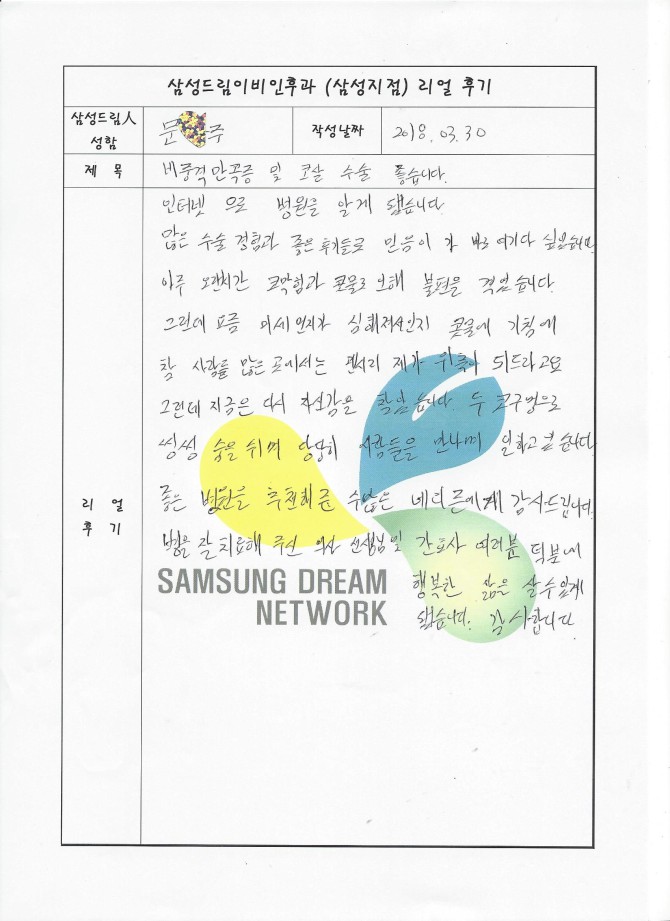 삼성드림이비인후과 (삼성지점) 리얼 후기
삼성드림人
성함
문 주
작성날짜
2018. 03. 30
제 목
비중격만곡증 및 코살 수술 좋습니다.
인터넷 으로 병원을 알게 됐습니다.
많은 수술 경험과 좋은 후기들로 믿음이 가 바로 여기다 싶었습니다
아주 오랜시간 코막힘과 콧물로 인해 불편을 겪었습니다.
그런데 요즘 미세먼지가 심해져서인지 콧물에 기침에
참 사람들 많은 곳에서는 괜시리 제가 위축이 되드라고요
그런데 지금은 다시 자신감을 찾았습니다. 두 코구멍으로
씽씽 숨을 쉬며 당당히 사람들을 만나며 일하고 있습니다
좋은 병원을 추천해준 수많은 네티즌에게 감사드립니다.
병을 잘 치료해 주신 의사 선생님 및 간호사 여러분 덕분에
행복한 삶을 살 수 있게
됐습니다. 감사합니다
리 얼
후 기
SAMSUNG DREAM
NETWORK